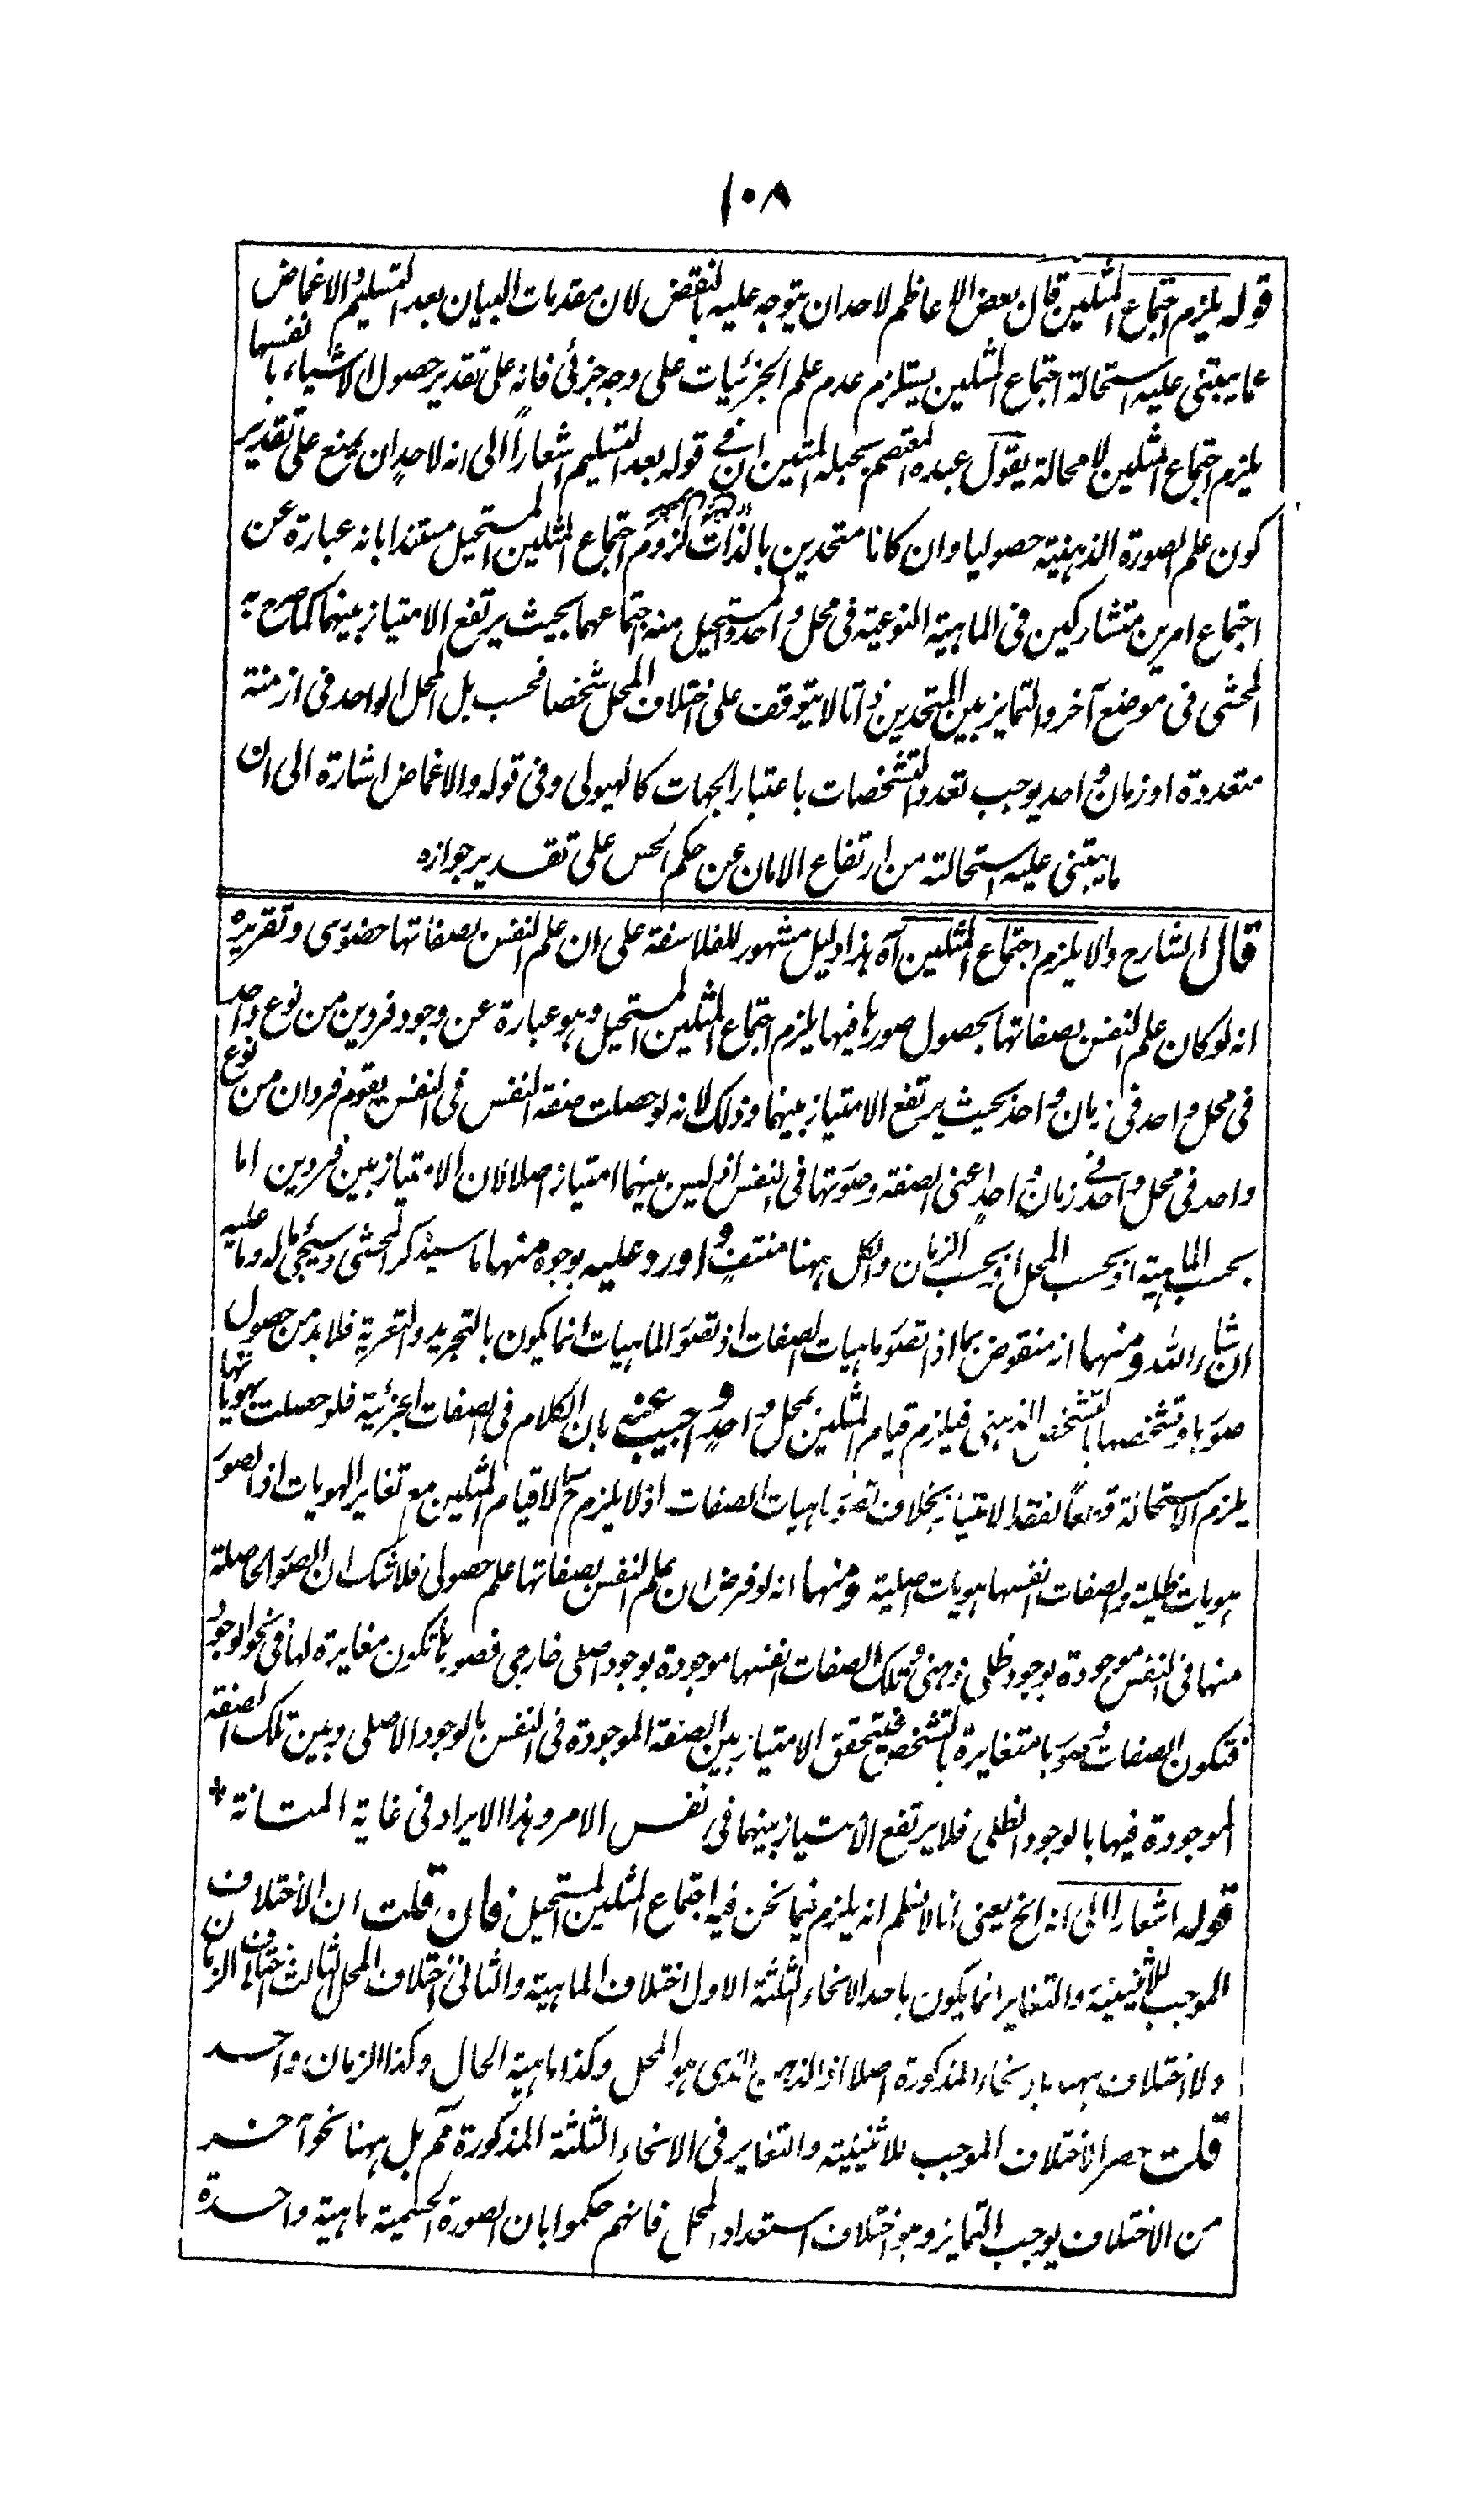 ١٠٨
قوله يلزم اجتماع المثلين قال بعض الاعاظم لاحد ان يتوجه عليه بالنقض لان مقدمات البيان بعد التسليم والاغماض
عما يبتنى عليه استحالة اجتماع المثلين يستلزم عدم علم الجزئيات على وجه جزئى فانه على تقدير حصول الاشياء بانفسها
يلزم اجتماع المثلين لا محالة يقول عبده المعتصم بحبله المتين ان فى قوله بعد التسليم اشعاراً الى انه لاحدٍ ان يمنع على تقدير
كون علم الصورة الذهنية حصوليا وان كانا متحدين بالذات لزوم اجتماع المثلين المستحيل مستندا بانه عبارة عن
اجتماع امرين متشاركين فى الماهية النوعية فى محل واحد والمستحيل منه اجتماعهما بحيث يرتفع الامتياز بينهما كما صرح به
المحشى فى موضع آخر والتمايز بين المتحدين ذاتا لا يتوقف على اختلاف المحل شخصا فحسب بل المحل الواحد فى ازمنة
متعددة او زمان واحد يوجب تعدد التشخصات باعتبار الجهات كالهيولى وفى قوله والاغماض اشارة الى ان
ما يبتنى عليه استحالته من ارتفاع الامان عن حكم الحس على تقدير جوازه
قال الشارح والا يلزم اجتماع المثلين آه هذا دليل مشهور للفلاسفة على ان علم النفس بصفاتها حضورى وتقريره
انه لو كان علم النفس بصفاتها بحصول صورها فيها يلزم اجتماع المثلين المستحيل وهو عبارة عن وجود فردين من نوع واحد
فى محل واحد فى زمان واحد بحيث يرتفع الامتياز بينهما وذلك لانه لو حصلت صفة النفس فى النفس يقوم فردان من نوع
واحد فى محل واحد فى زمان واحدٍ اعنى الصفة وصورتها فى النفس اذ ليس بينهما امتياز اصلا لان الامتياز بين فردين اما
بحسب الماهية او بحسب المحل او بحسب الزمان والكل ههنا منتفٍ واورد عليه بوجوه منها ما سيذكر المحشى وسيجئ ماله وما عليه
ان شاء الله ومنها انه منقوض بما اذا تصور ماهيات الصفات اذ تصور الماهيات انما يكون بالتجريد والتعرية فلابد من حصول
صورها وتشخصها بالتشخص الذهنى فيلزم قيام المثلين بمحل واحدٍ واجيب عنه بان الكلام فى الصفات الجزئية فلو حصلت بهوياتها
يلزم الاستحالة قطعاً لفقد الامتياز بخلاف تصور ماهيات الصفات اذ لا يلزم ح الا قيام المثلين مع تغاير الهويات اذ الصور
هويات ظلية والصفات انفسها هويات اصلية ومنها انه لو فرض ان علم النفس بصفاتها علم حصولى فلا شك ان الصور الحاصلة
منها فى النفس موجودة بوجود ظلى ذهنى وتلك الصفات انفسها موجودة بوجود اصلى خارجى فصورها تكون مغايرة لها فى نحو الوجود
فتكون الصفات وصورها متغايرة بالتشخص فيتحقق الامتياز بين الصفة الموجودة فى النفس بالوجود الاصلى وبين تلك الصفة
الموجودة فيها بالوجود الظلى فلا يرتفع الامتياز بينهما فى نفس الامر وهذا الايراد فى غاية المتانة *
قوله اشعارا الى انه الخ يعنى انا لا نسلم انه يلزم فيما نحن فيه اجتماع المثلين المستحيل فان قلت ان الاختلاف
الموجب للاثنينية والتغاير انما يكون باحد الانحاء الثلثة الاول اختلاف الماهية والثانى اختلاف المحل والثالث اختلاف الزمان
ولا اختلاف ههنا بالانحاء المذكورة اصلا اذ الذهن الذى هو المحل وكذا ماهية الحال وكذا الزمان واحد
قلت حصر الاختلاف الموجب للاثنينية والتغاير فى الانحاء الثلثة المذكورة مم بل ههنا نحو آخر
من الاختلاف يوجب التمايز وهو اختلاف استعداد المحل فانهم حكموا بان الصورة الجسمية ماهية واحدة